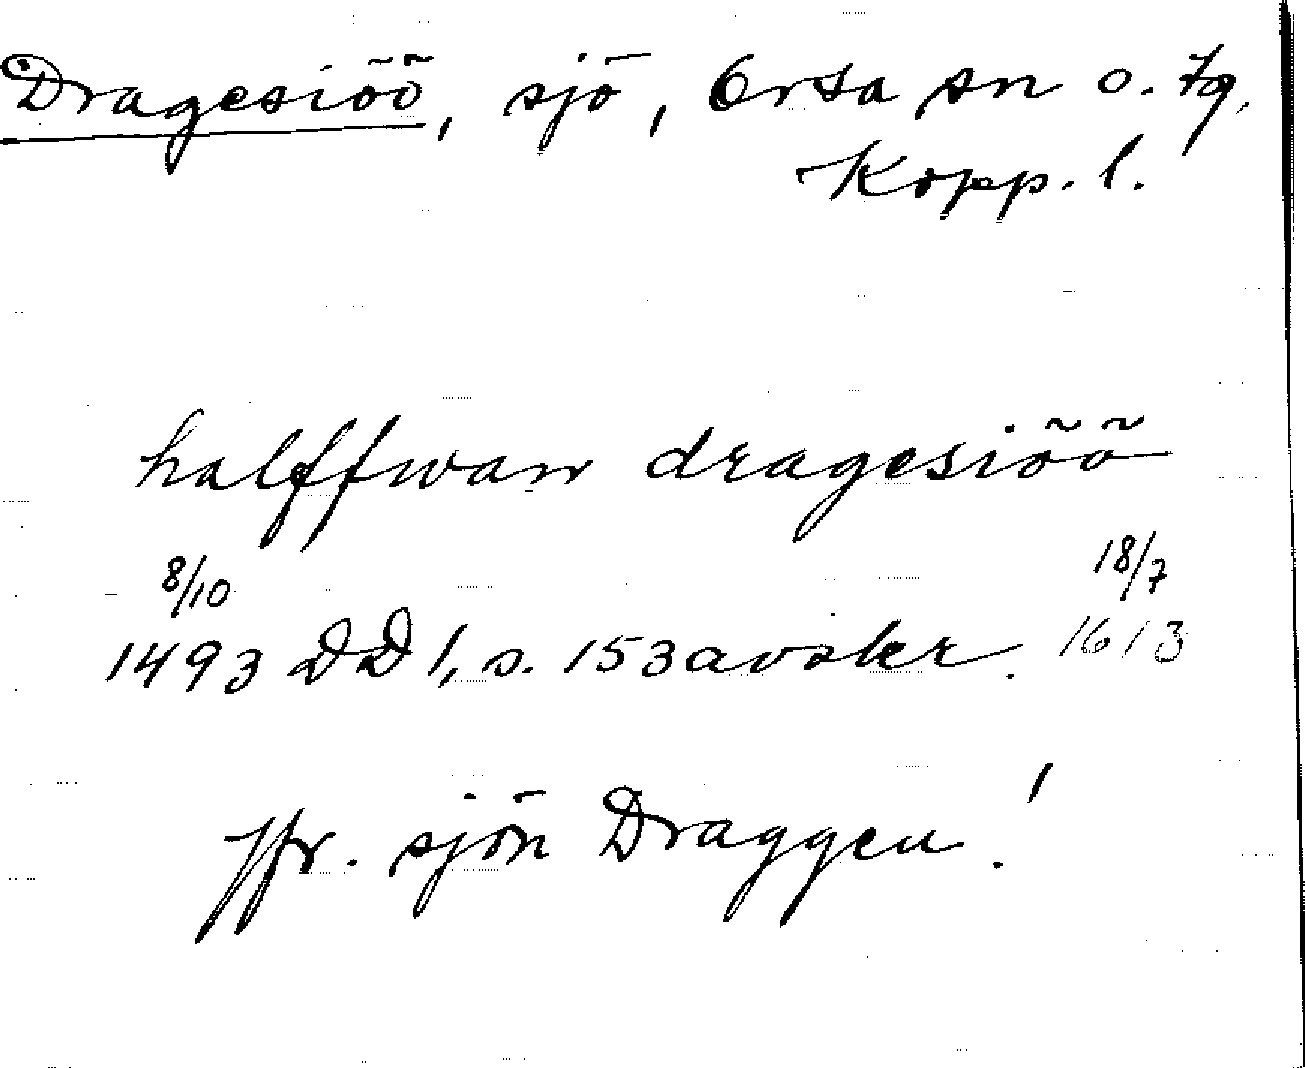 Dragesiöö, sjö, Orsa sn o. tg,
Kopp. l.
halffwan dragesiöö
8/10 18/7
1493 DD 1, s. 153 avskr. 1613
Jfr. sjön Draggen!